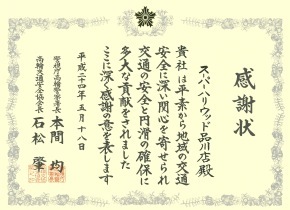 感謝状
スーパーハリウッド品川店殿
貴社は平素から地域の交通
安全に深い関心を寄せられ
交通の安全と円滑の確保に
多大な貢献をされました
ここに深く感謝の意を表します
平成二十四年五月十八日
警視庁高輪警察署長
本間 均
高輪交通安全協会長
石松 肇